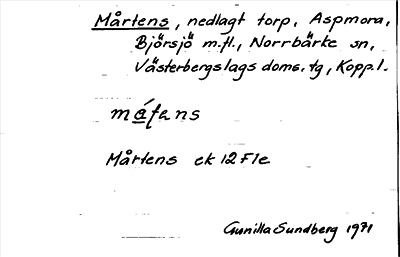 Mårtens, nedlagt torp, Aspmora,
Björsjö m.fl., Norrbärke sn,
Västerbergslags doms. tg, Kopp. l.
Mårtens ek 12 F1e
Gunilla Sundberg 1971